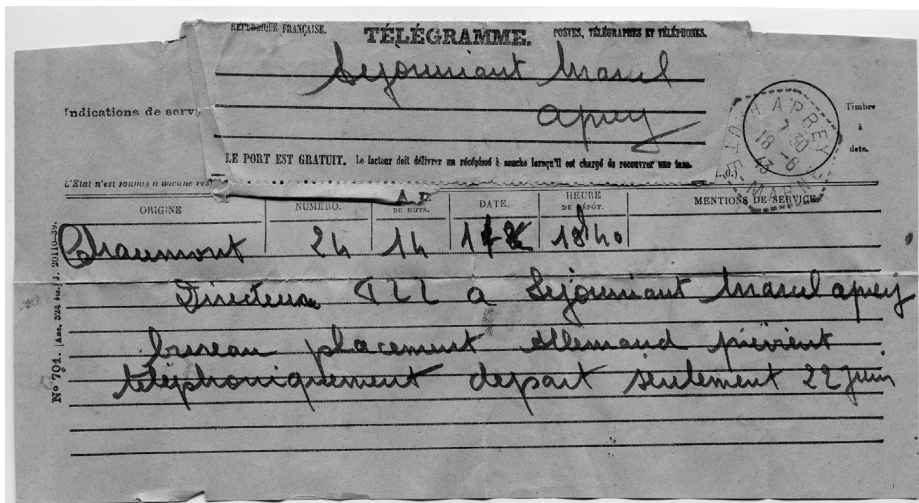 RÉPUBLIQUE FRANÇAISE. TÉLÉGRAMME. POSTES, TÉLÉGRAPHES ET TÉLÉPHONES.
Sejournant Marcel
aprey
Indications de servi
Timbre
à
date.
LE PORT EST GRATUIT. Le facteur doit délivrer un récépissé à souche lorsqu'il est chargé de recouvrer une taxe.
APREY
7 30
18 -6
43
HTE MARNE
L'État n'est soumis à aucune res
ORIGINE NUMÉRO. DE MOTS. DATE. HEURE DE DÉPÔT. MENTIONS DE SERVICE.
Chaumont 24 14 18h40
Directeur à Sejournant Marcel aprey
bureau placement Allemand prévient
téléphoniquement depart seulement 22 juin
N° 701.